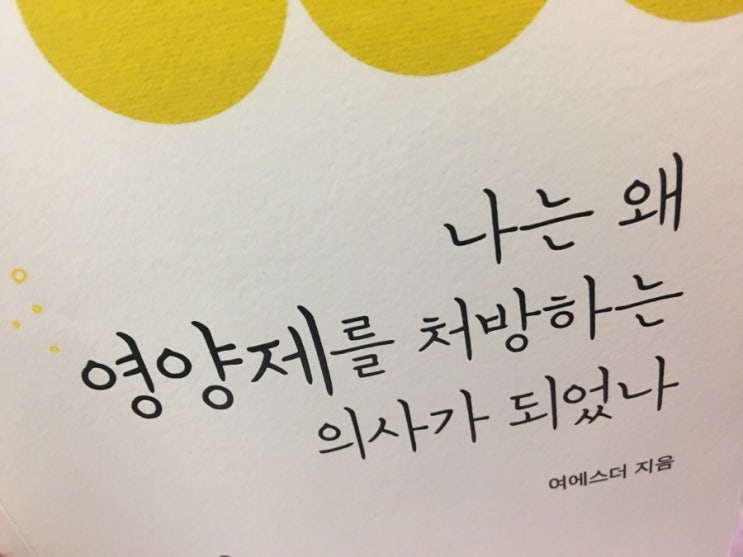 나는 왜
영양제를 처방하는
의사가 되었나
여에스더 지음